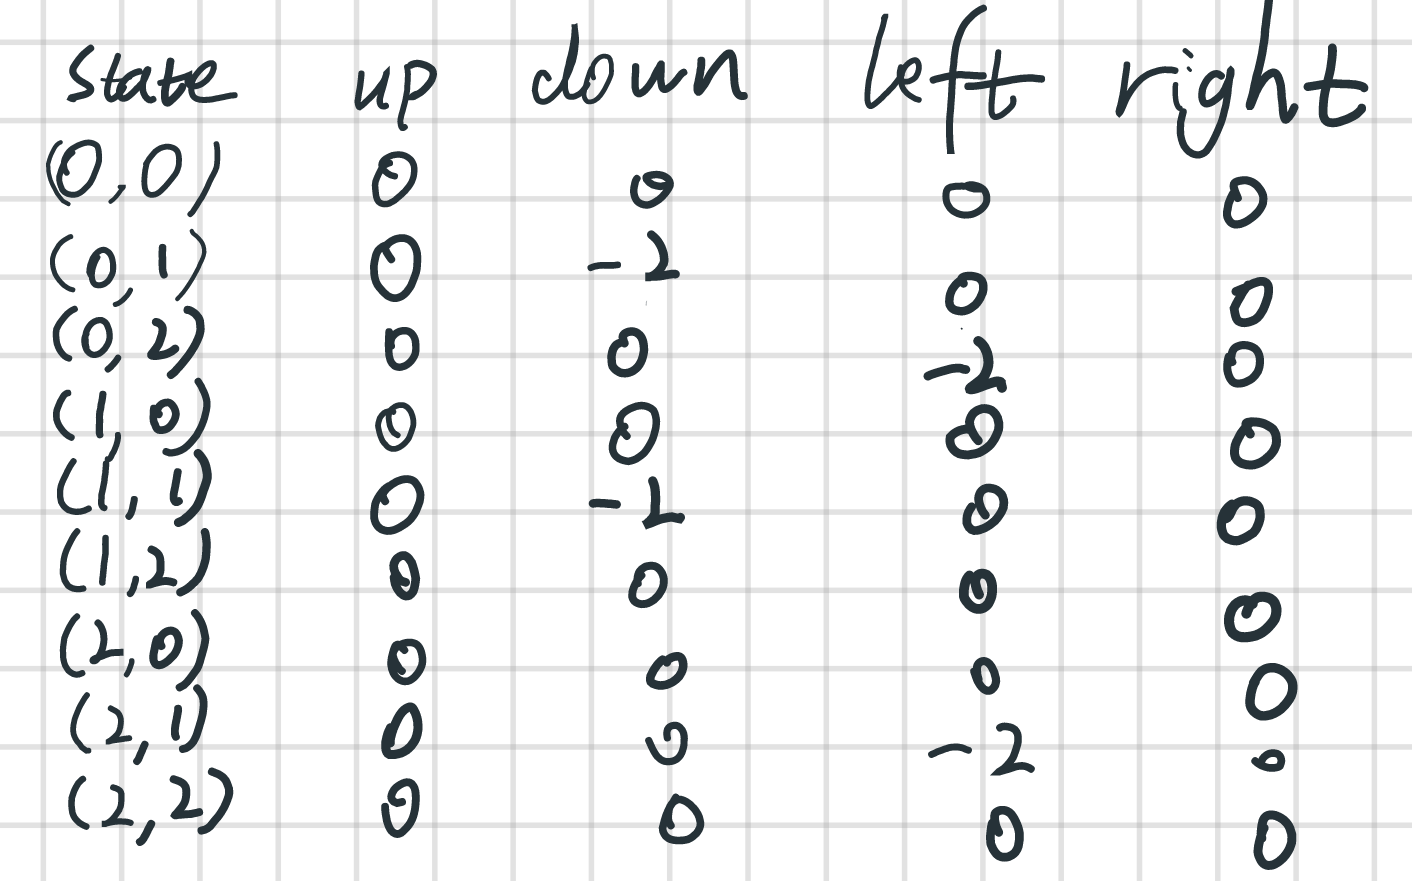 state up down left right
(0,0) 0 0 0 0
(0,1) 0 -2 0 0
(0,2) 0 0 -2 0
(1,0) 0 0 0 0
(1,1) 0 -2 0 0
(1,2) 0 0 0 0
(2,0) 0 0 0 0
(2,1) 0 0 -2 0
(2,2) 0 0 0 0